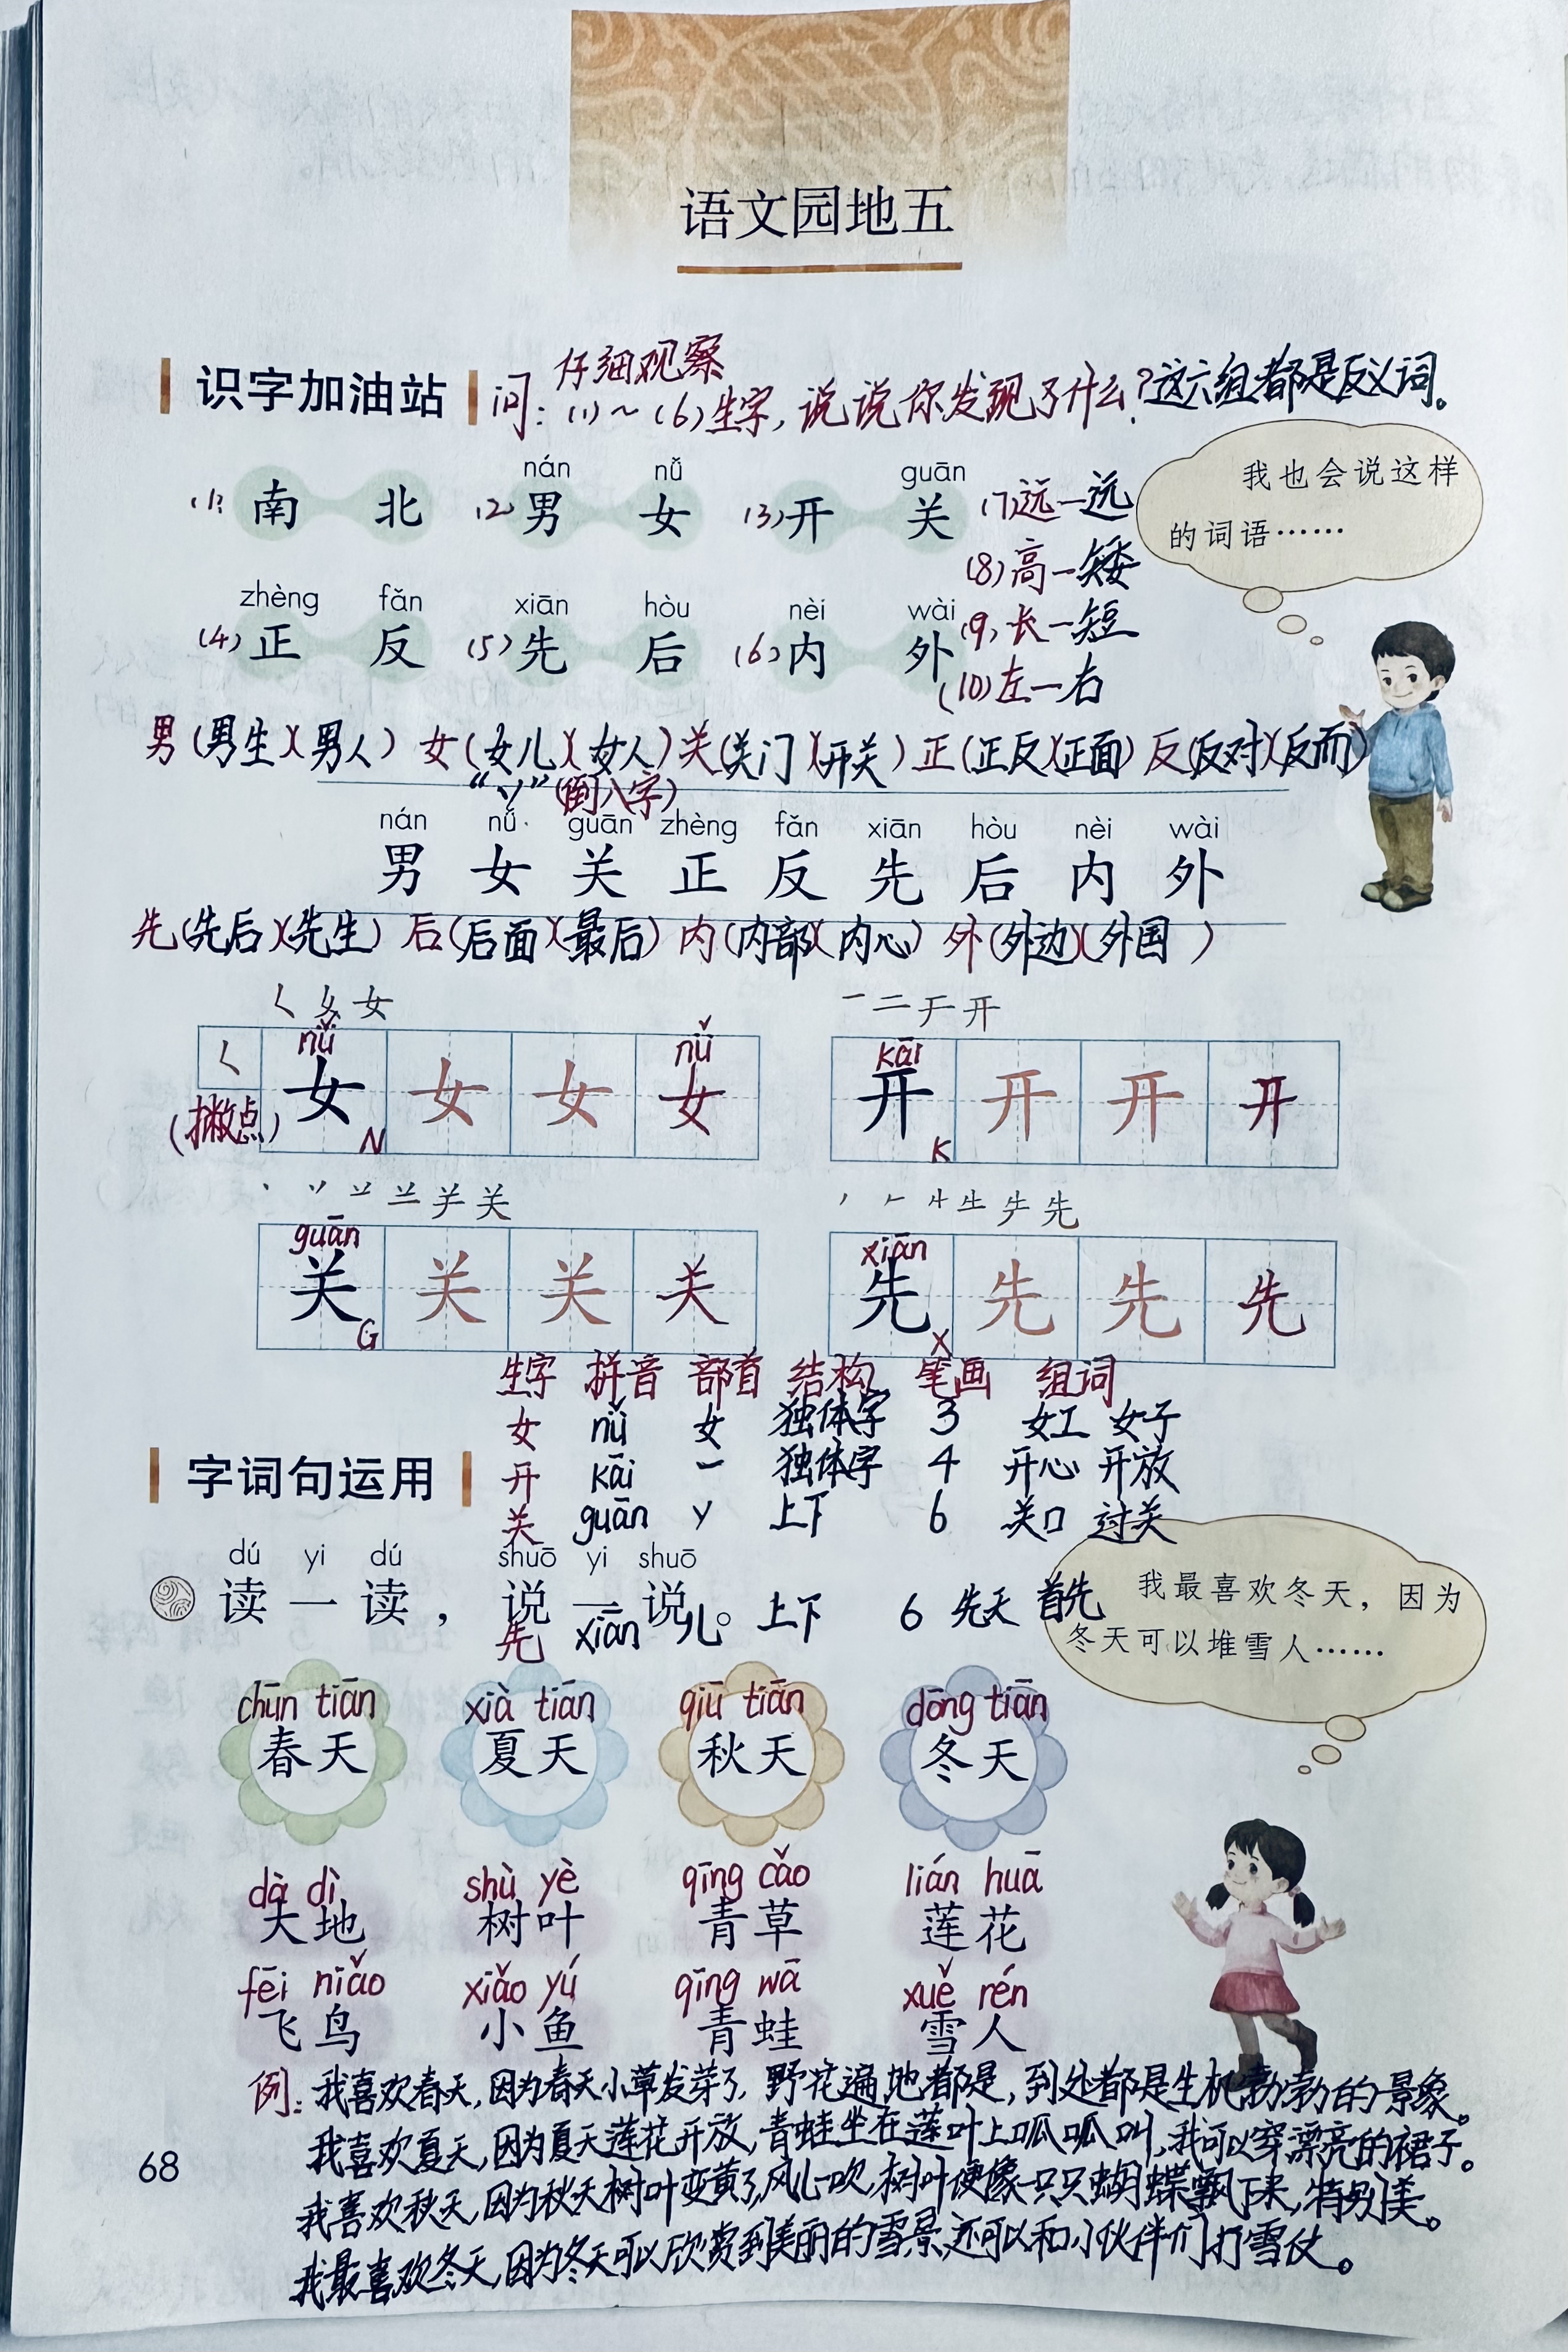 语文园地五
识字加油站 问：仔细观察(1)～(6)生字，说说你发现了什么？这六组都是反义词。
nán nǚ guān
(1) 南 北 (2) 男 女 (3) 开 关 (7)远一远
我也会说这样
的词语……
(8)高一矮
zhèng fǎn xiān hòu nèi wài
(4) 正 反 (5) 先 后 (6) 内 外 (9)长一短
(10)左一右
男(男生)(男人) 女(女儿)(女人) 关(关门)(开关) 正(正反)(正面) 反(反对)(反而)
“丷”(倒八字)
nán nǚ guān zhèng fǎn xiān hòu nèi wài
男 女 关 正 反 先 后 内 外
先(先后)(先生) 后(后面)(最后) 内(内部)(内心) 外(外边)(外国)
nǚ nǚ kāi
女 女 女 女 开 开 开 开
(撇点) N K
guān xiān
关 关 关 关 先 先 先 先
G X
生字 拼音 部首 结构 笔画 组词
女 nǚ 女 独体字 3 女工 女子
开 kāi 一 独体字 4 开心 开放
关 guān 丷 上下 6 关口 过关
先 xiān 儿 上下 6 先天 首先
字词句运用
dú yi dú shuō yi shuō
读一读，说一说。
我最喜欢冬天，因为
冬天可以堆雪人……
chūn tiān xià tiān qiū tiān dōng tiān
春天 夏天 秋天 冬天
dà dì shù yè qīng cǎo lián huā
大地 树叶 青草 莲花
fēi niǎo xiǎo yú qīng wā xuě rén
飞鸟 小鱼 青蛙 雪人
例：我喜欢春天，因为春天小草发芽了，野花遍地都是，到处都是生机勃勃的景象。
我喜欢夏天，因为夏天莲花开放，青蛙坐在莲叶上呱呱叫，我可以穿漂亮的裙子。
我喜欢秋天，因为秋天树叶变黄了，风儿一吹，树叶便像一只只蝴蝶飘下来，特别美。
我最喜欢冬天，因为冬天可以欣赏到美丽的雪景，还可以和小伙伴们打雪仗。
68